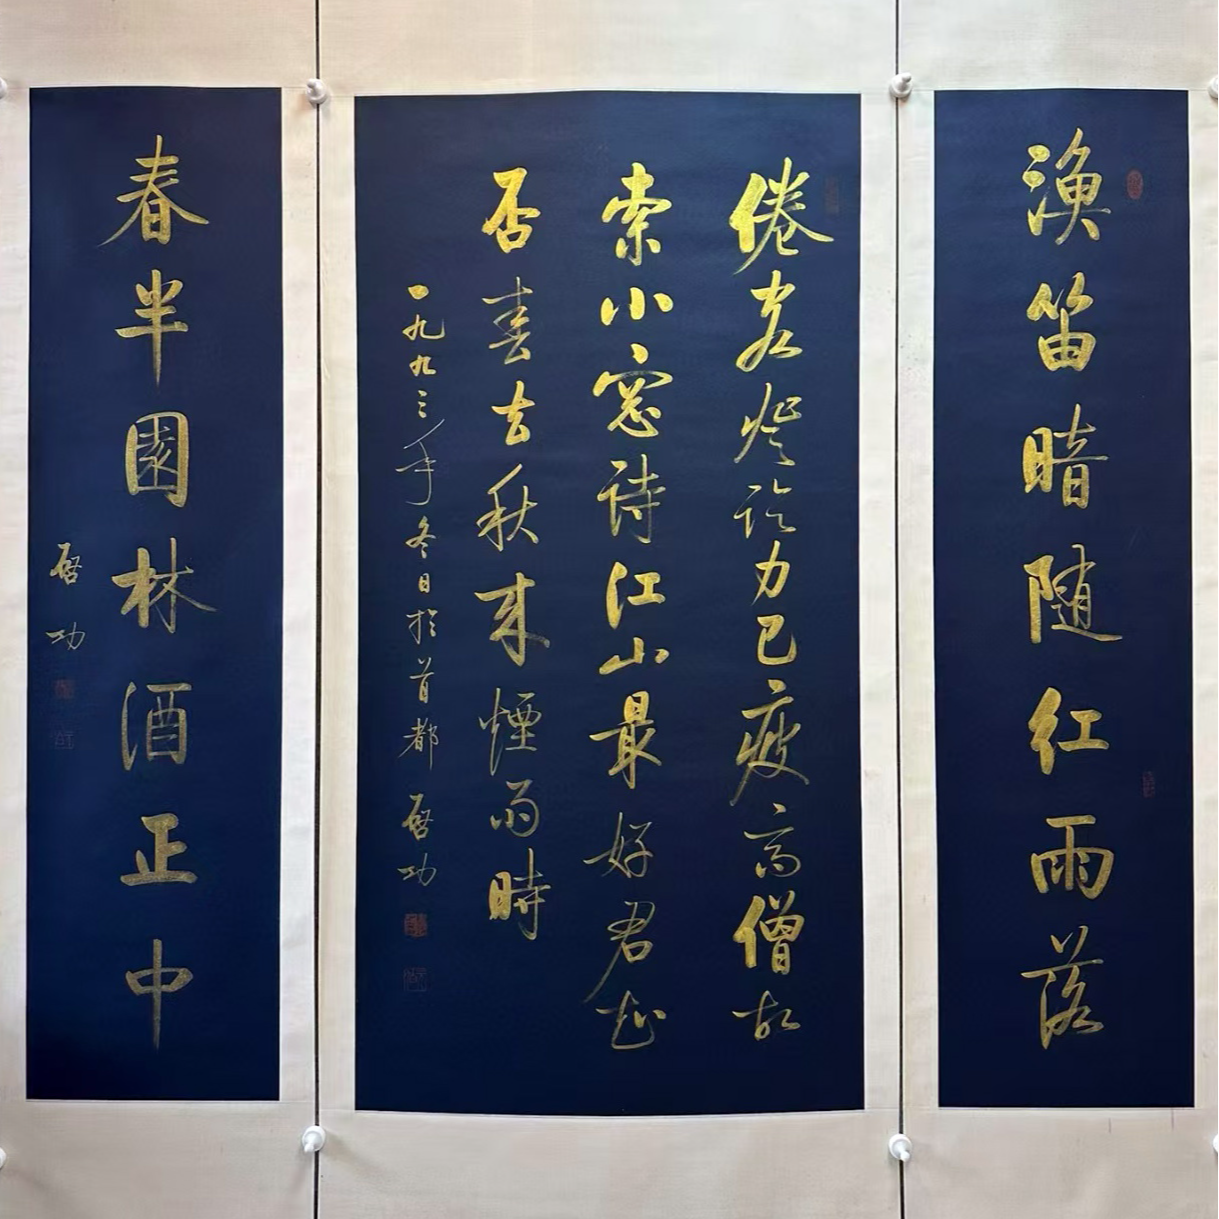 漁笛暗随红雨落
倦客登临力已疲高僧故
索小窓诗江山最好君知
否春去秋来煙雨時
一九九三年冬日於首都 启功
春半園林酒正中
启功